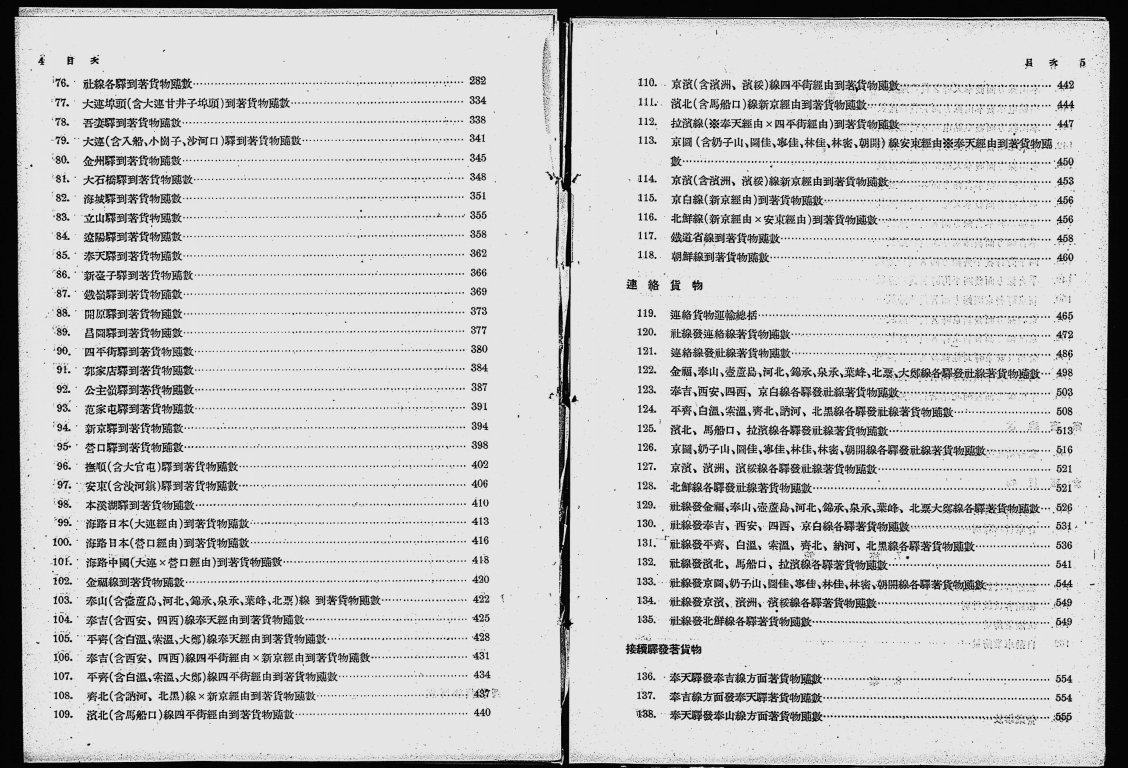 4 目次
76. 社線各驛到著貨物噸數 282
77. 大連埠頭(含大連甘井子埠頭)到著貨物噸數 334
78. 吾妻驛到著貨物噸數 338
79. 大連(含入船、小崗子、沙河口)驛到著貨物噸數 341
80. 金州驛到著貨物噸數 345
81. 大石橋驛到著貨物噸數 348
82. 海城驛到著貨物噸數 351
83. 立山驛到著貨物噸數 355
84. 遼陽驛到著貨物噸數 358
85. 奉天驛到著貨物噸數 362
86. 新臺子驛到著貨物噸數 366
87. 鐵嶺驛到著貨物噸數 369
88. 開原驛到著貨物噸數 373
89. 昌圖驛到著貨物噸數 377
90. 四平街驛到著貨物噸數 380
91. 郭家店驛到著貨物噸數 384
92. 公主嶺驛到著貨物噸數 387
93. 范家屯驛到著貨物噸數 391
94. 新京驛到著貨物噸數 394
95. 營口驛到著貨物噸數 398
96. 撫順(含大官屯)驛到著貨物噸數 402
97. 安東(含沙河鎮)驛到著貨物噸數 406
98. 本溪湖驛到著貨物噸數 410
99. 海路日本(大連經由)到著貨物噸數 413
100. 海路日本(營口經由)到著貨物噸數 416
101. 海路中國(大連×營口經由)到著貨物噸數 418
102. 金福線到著貨物噸數 420
103. 奉山(含壺蘆島、河北、錦承、泉承、葉峰、北票)線 到著貨物噸數 422
104. 奉吉(含西安、四西)線奉天經由到著貨物噸數 425
105. 平齊(含白溫、索溫、大鄭)線奉天經由到著貨物噸數 428
106. 奉吉(含西安、四西)線四平街經由×新京經由到著貨物噸數 431
107. 平齊(含白溫、索溫、大鄭)線四平街經由到著貨物噸數 434
108. 齊北(含訥河、北黑)線×新京經由到著貨物噸數 437
109. 濱北(含馬船口)線四平街經由到著貨物噸數 440
目次 5
110. 京濱(含濱洲、濱綏)線四平街經由到著貨物噸數 442
111. 濱北(含馬船口)線新京經由到著貨物噸數 444
112. 拉濱線(※奉天經由×四平街經由)到著貨物噸數 447
113. 京圖(含奶子山、圖佳、寧佳、林佳、林密、朝開)線安東經由※奉天經由到著貨物噸
數 450
114. 京濱(含濱洲、濱綏)線新京經由到著貨物噸數 453
115. 京白線(新京經由)到著貨物噸數 456
116. 北鮮線(新京經由×安東經由)到著貨物噸數 456
117. 鐵道省線到著貨物噸數 458
118. 朝鮮線到著貨物噸數 460
連絡貨物
119. 連絡貨物運輸總括 465
120. 社線發連絡線著貨物噸數 472
121. 連絡線發社線著貨物噸數 486
122. 金福、奉山、壺蘆島、河北、錦承、泉承、葉峰、北票、大鄭線各驛發社線著貨物噸數 498
123. 奉吉、西安、四西、京白線各驛發社線著貨物噸數 503
124. 平齊、白溫、索溫、齊北、訥河、北黑線各驛發社線著貨物噸數 508
125. 濱北、馬船口、拉濱線各驛發社線著貨物噸數 513
126. 京圖、奶子山、圖佳、寧佳、林佳、林密、朝開線各驛發社線著貨物噸數 516
127. 京濱、濱洲、濱綏線各驛發社線著貨物噸數 521
128. 北鮮線各驛發社線著貨物噸數 521
129. 社線發金福、奉山、壺蘆島、河北、錦承、泉承、葉峰、北票大鄭線各驛著貨物噸數 526
130. 社線發奉吉、西安、四西、京白線各驛著貨物噸數 531
131. 社線發平齊、白溫、索溫、齊北、納河、北黑線各驛著貨物噸數 536
132. 社線發濱北、馬船口、拉濱線各驛著貨物噸數 541
133. 社線發京圖、奶子山、圖佳、寧佳、林佳、林密、朝開線各驛著貨物噸數 544
134. 社線發京濱、濱洲、濱綏線各驛著貨物噸數 549
135. 社線發北鮮線各驛著貨物噸數 549
接續驛發著貨物
136. 奉天驛發奉吉線方面著貨物噸數 554
137. 奉吉線方面發奉天驛著貨物噸數 554
138. 奉天驛發奉山線方面著貨物噸數 555